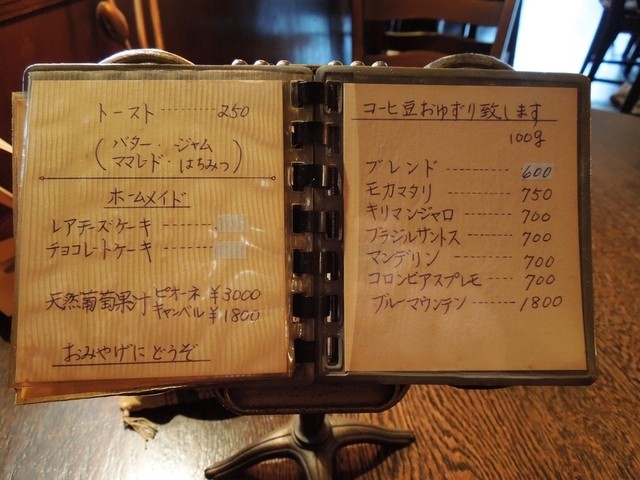 トースト ------- 250
(バター・ジャム
ママレド・はちみつ)
ホームメイド
レアチーズケーキ -------
チョコレートケーキ -------
天然葡萄果汁 ピオーネ ¥3000
キャンベル ¥1800
おみやげにどうぞ
コーヒ豆おゆずり致します
100g
ブレンド ------- 600
モカマタリ ------- 750
キリマンジャロ ------- 700
ブラジルサントス ------- 700
マンデリン ------- 700
コロンビアスプレモ ------- 700
ブルーマウンテン ------- 1800